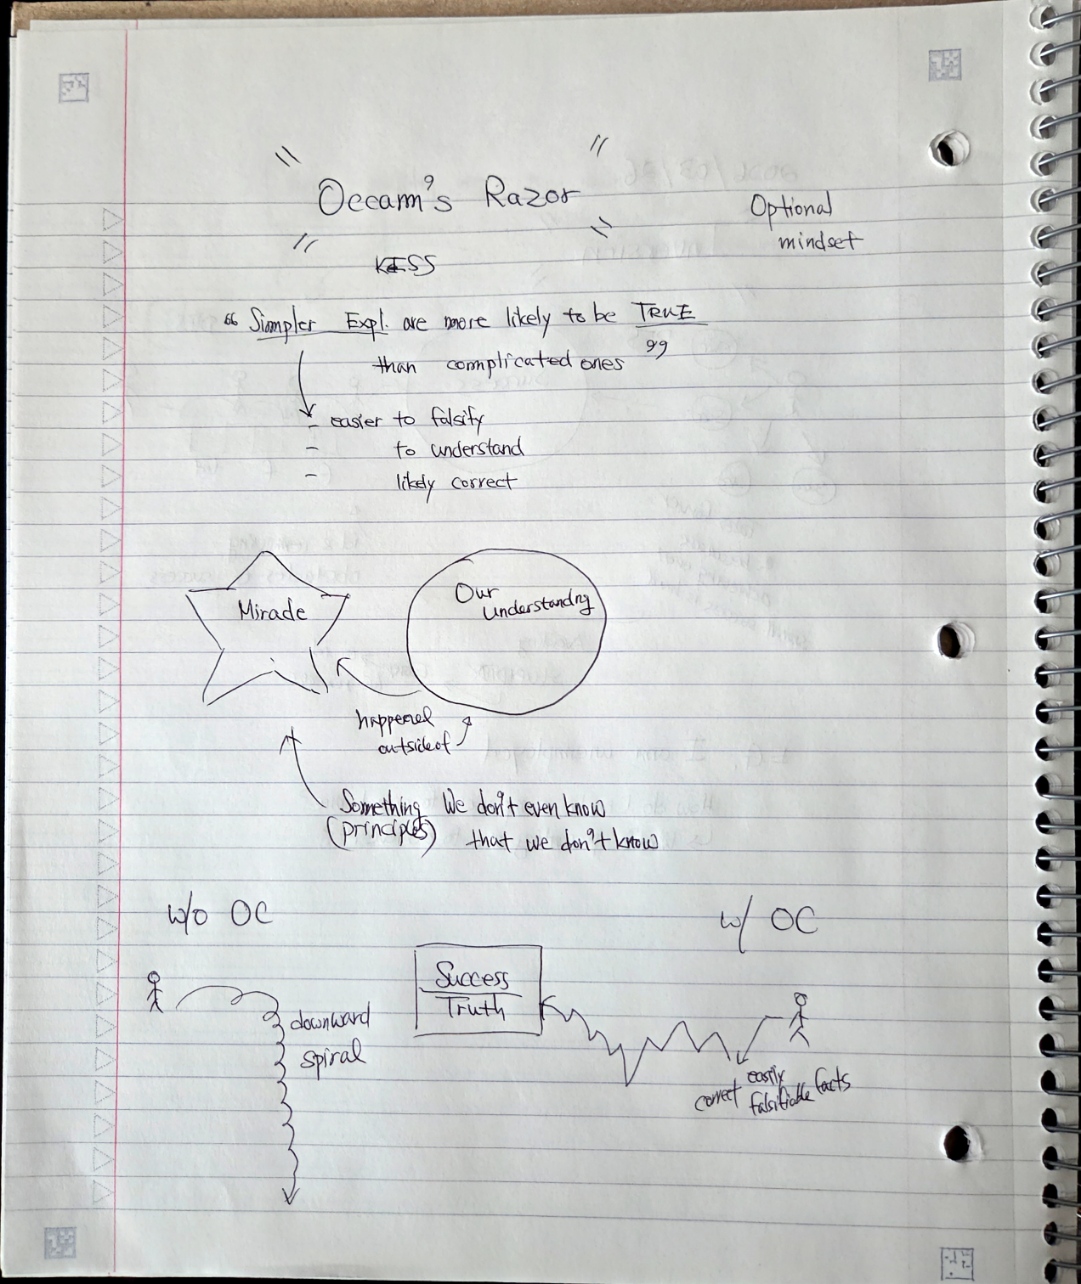 Occam's Razor
Optional
mindset
KISS
"Simpler Expl. are more likely to be TRUE
than complicated ones"
- easier to falsify
- to understand
- likely correct
Miracle
Our
understanding
happened
outside of
Something We don't even know
(principles) that we don't know
w/o OC
w/ OC
Success
Truth
downward
spiral
correct easily
falsifiable facts